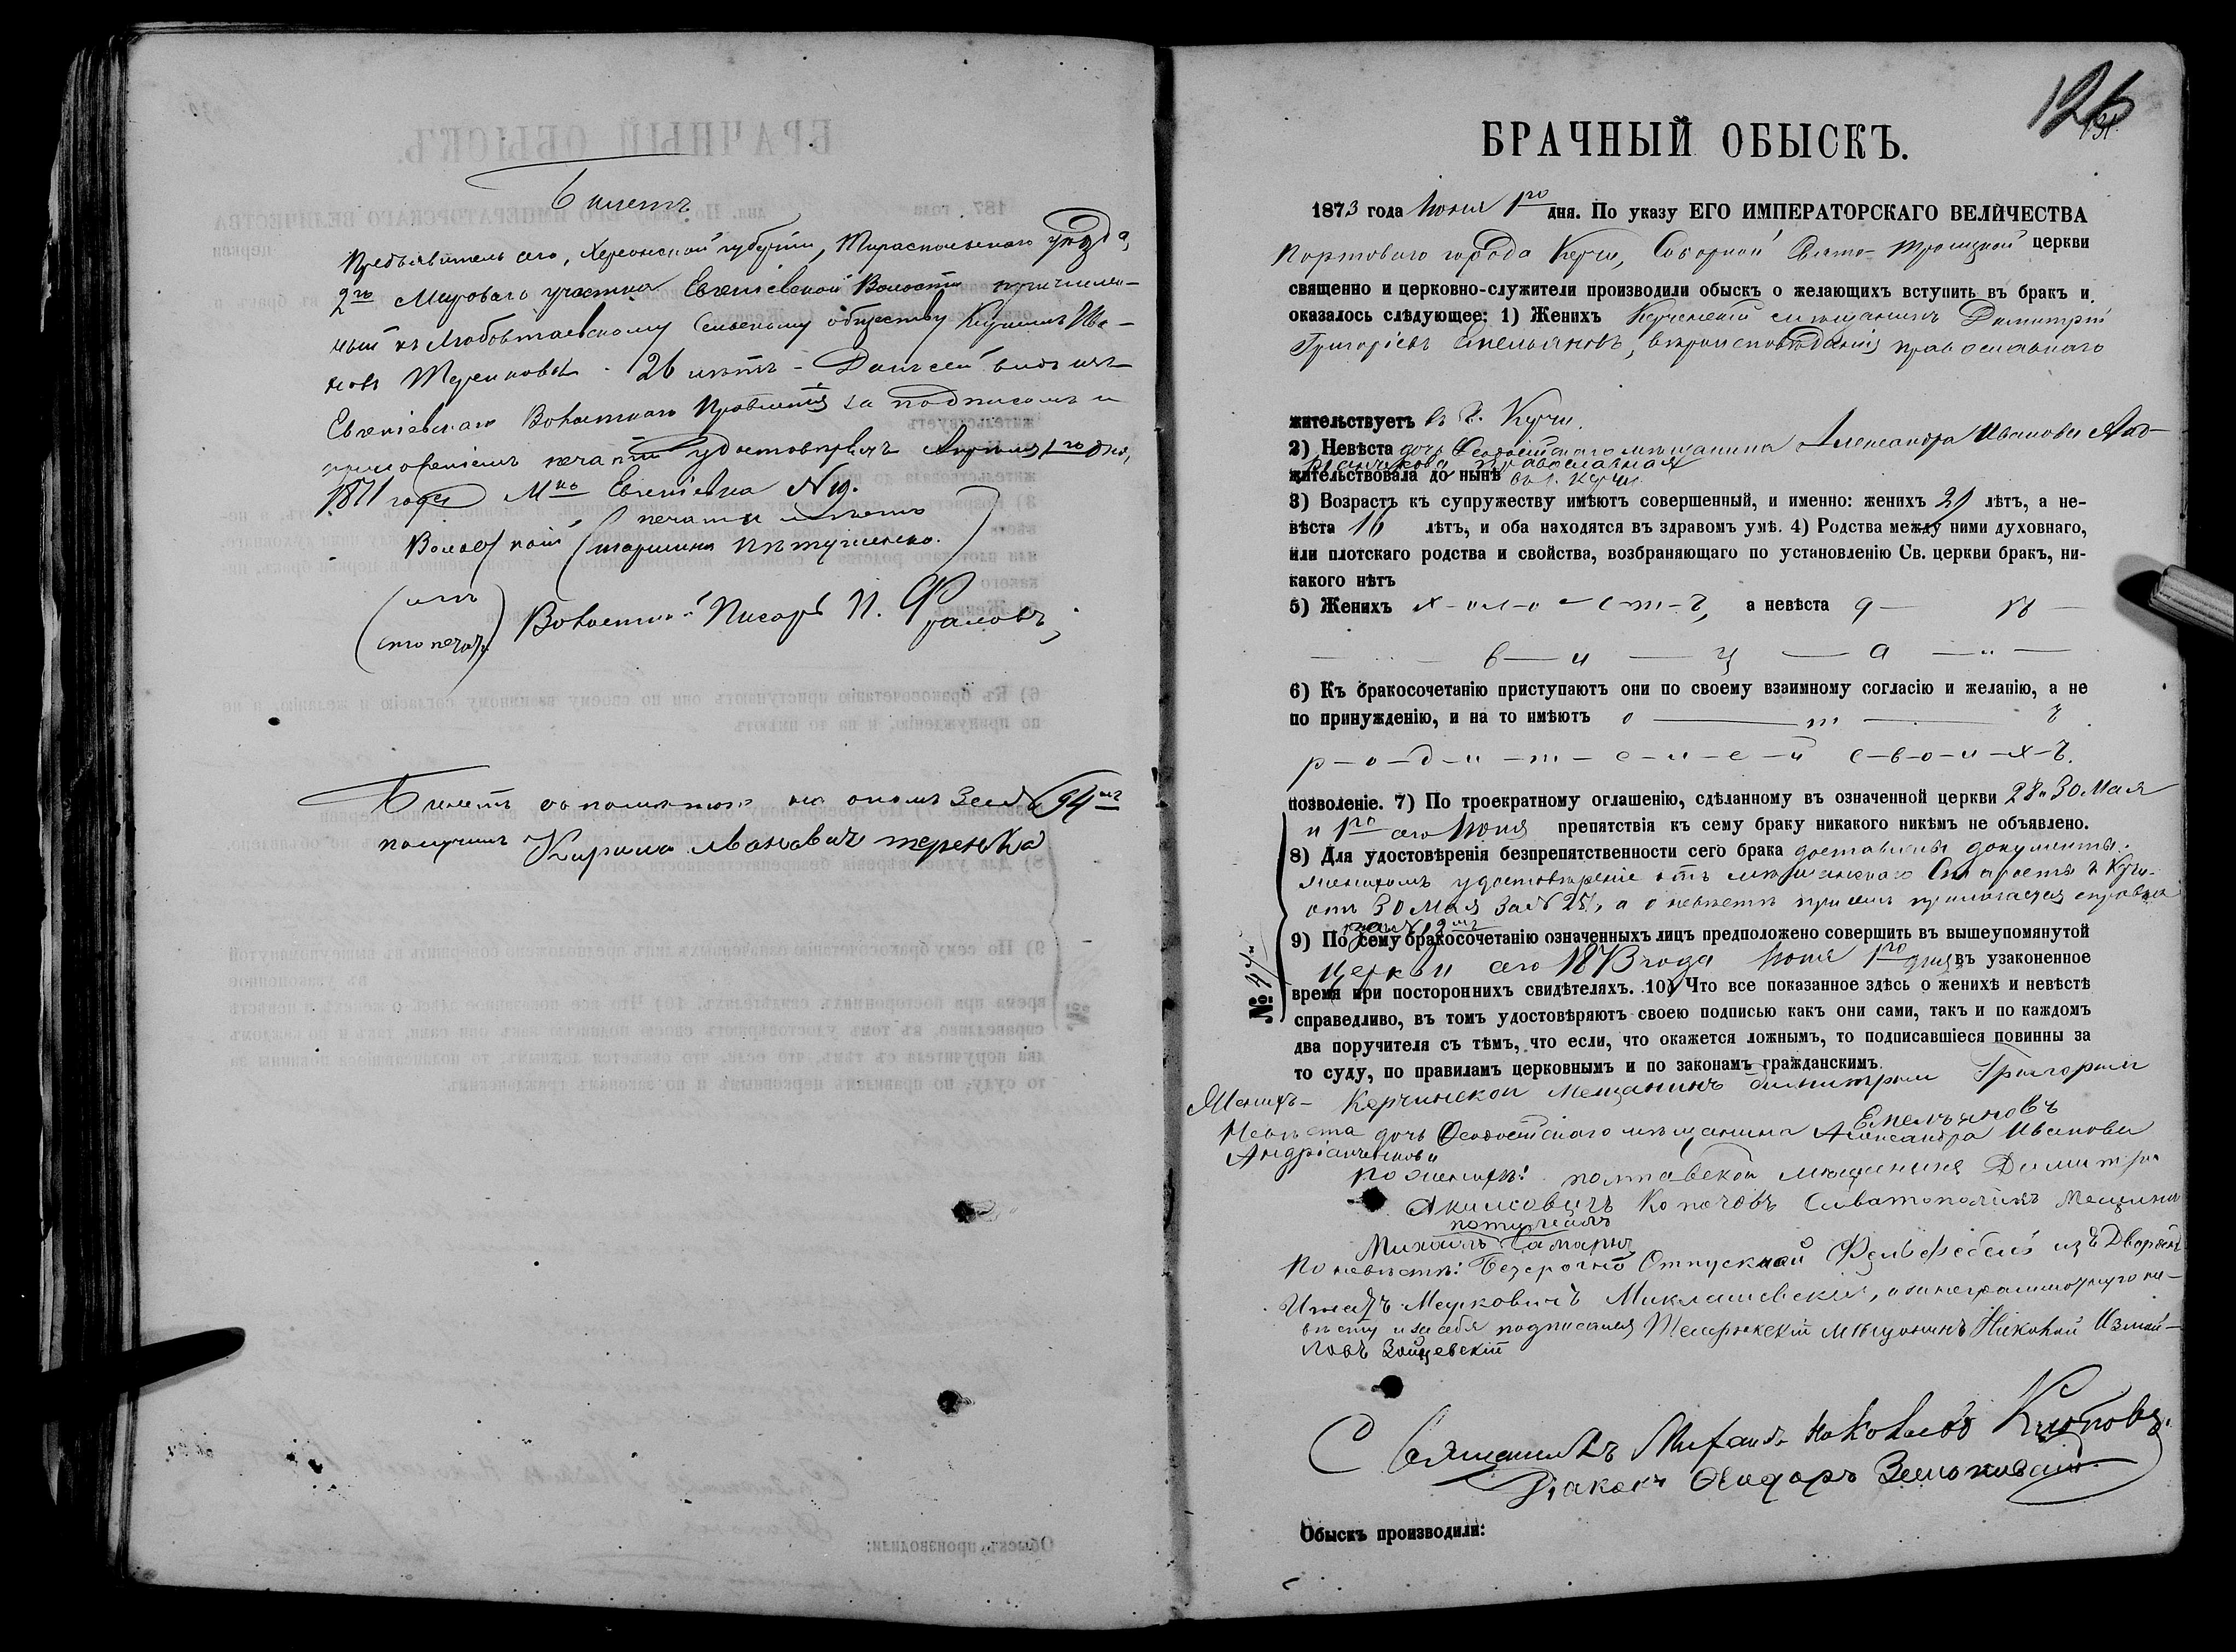 Билетъ
Предъявитель сего, Херсонской губерніи, Тираспольскаго уѣзда,
2го Мироваго участка Евгеніевской Волости причислен-
ный къ сельскому обществу Кирилъ Ива-
новъ Теренковъ 26 лѣтъ - Данъ сей видъ изъ
Евгеніевскаго Волостнаго Правленія за подписомъ и
приложеніемъ печати удостовѣряемъ Апрѣля 1го дня,
1871 года Мко Евгеніевка №19.
Волостной (печати имѣетъ
старшина)
(мѣсто печати) Волостной Писарь П. Фраловъ
Билетъ съ помѣткою на ономъ за № 94мъ
получилъ Кирило Иванович теренко
126
131.
БРАЧНЫЙ ОБЫСКЪ.
1873 года Іюня 1го дня. По указу ЕГО ИМПЕРАТОРСКАГО ВЕЛИЧЕСТВА
Портоваго города Керчи, Соборной Свято-Троицкой церкви
священно и церковно-служители производили обыскъ о желающихъ вступить въ бракъ и
оказалось слѣдующее: 1) Женихъ Керченскій мѣщанинъ Димитрій
Григоріевъ Емельяновъ, вѣроисповѣданія православнаго
жительствуетъ въ г. Керчи.
2) Невѣста дочь Ѳеодосійскаго мѣщанина Александра Иванова Анд-
ріанченкова православная
жительствовала до нынѣ въ г. Керчи
3) Возрастъ къ супружеству имѣютъ совершенный, и именно: женихъ 21 лѣтъ, а не-
вѣста 16 лѣтъ, и оба находятся въ здравомъ умѣ. 4) Родства между ними духовнаго,
или плотскаго родства и свойства, возбраняющаго по установленію Св. церкви бракъ, ни-
какого нѣтъ
5) Женихъ х-о-л-о-с-т-ъ, а невѣста д— ѣ—
— в — и — ц — а —
6) Къ бракосочетанію приступаютъ они по своему взаимному согласію и желанію, а не
по принужденію, и на то имѣютъ о — т — ъ
р-о-д-и-т-е-л-е-й с-в-о-и-х-ъ.
позволеніе. 7) По троекратному оглашенію, сдѣланному въ означенной церкви 28 и 30 Мая
и 1го сего Іюня препятствія къ сему браку никакого никѣмъ не объявлено.
8) Для удостовѣренія безпрепятственности сего брака доставлены документы:
женихомъ удостовѣреніе отъ мѣщанскаго Старосты г. Керчи
отъ 30 Мая за № 251, а о невѣстѣ при семъ прилагается справка
9) По сему бракосочетанію означенныхъ лицъ предположено совершить въ вышеупомянутой
церкви сего 1873 года Іюня 1го дня въ узаконенное
время при постороннихъ свидѣтеляхъ. 10) Что все показанное здѣсь о женихѣ и невѣстѣ
справедливо, въ томъ удостовѣряютъ своею подписью какъ они сами, такъ и по каждомъ
два поручителя съ тѣмъ, что если, что окажется ложнымъ, то подписавшіеся повинны за
то суду, по правиламъ церковнымъ и по законамъ гражданскимъ.
№
Женихъ - Керчинской Мещанинъ Димитрии Григорьи
Емельяновъ
Невѣста дочь Ѳеодосійскаго мѣщанина Александра Иванова
Андріанченкова
По женихѣ: полтавской мещанинъ Димитри
Акимовичъ Копачовъ Сивастополскъ Мещанинъ
Михаилъ
По невѣстѣ: Безсрочно Отпускной Фельдфебель изъ Дворянъ
Игнатъ Марковичъ Миклашевскій, а за неграмотную не-
вѣсту и за себя подписался Темрюкскій мѣщанинъ Николай Измай-
ловъ Зайцевскій
Священникъ Михаилъ Николаевъ Клоповъ.
Діаконъ Ѳеодоръ Зеньковскій
Обыскъ производили: